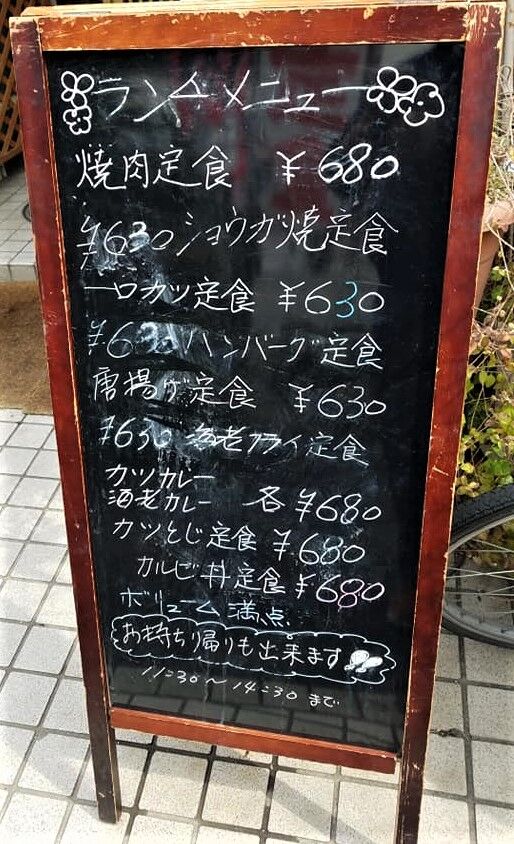 ランチメニュー
焼肉定食 ¥680
¥630 ショウガ焼定食
一口カツ定食 ¥630
ハンバーグ定食
唐揚げ定食 ¥630
¥630 海老フライ定食
カツカレー
海老カレー 各 ¥680
カツとじ定食 ¥680
カルビ丼定食 ¥680
ボリューム満点
お持ち帰りも出来ます
11:30〜14:30 まで